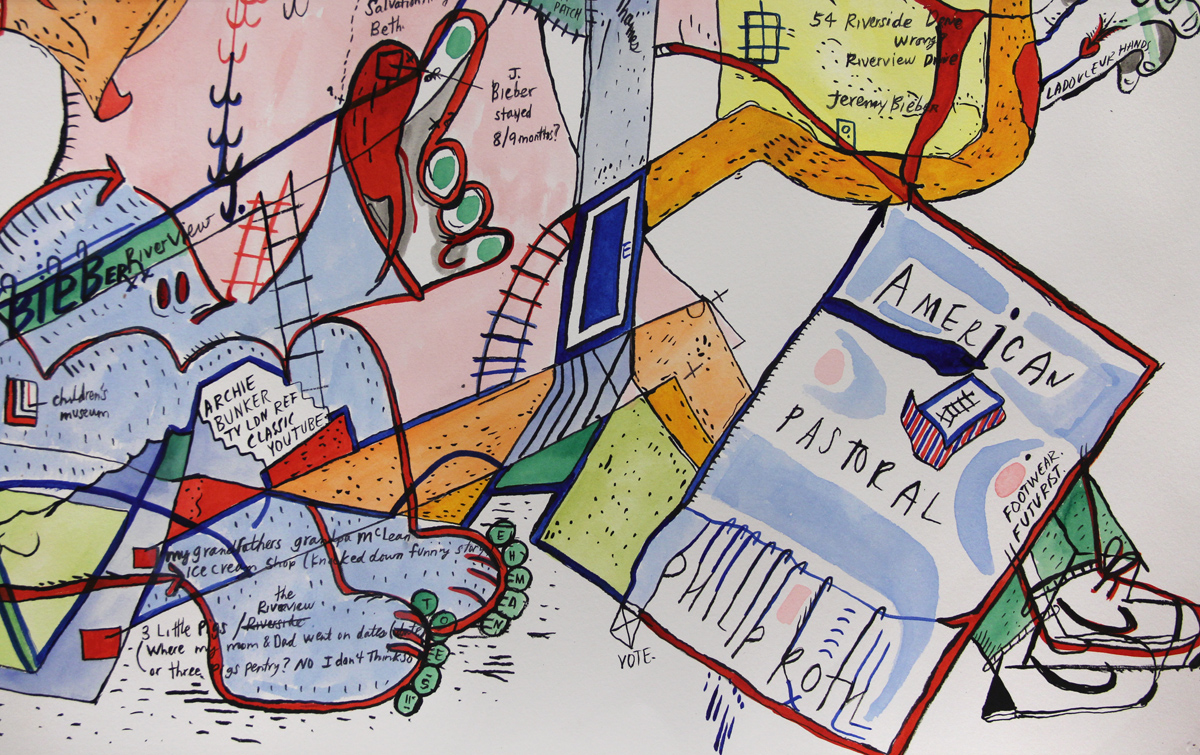 Salvation Army
Beth.
PATCH
Thames
54 Riverside Drive
wrong?
Riverview Drive
Jeremy Bieber
LADOUCEUR HANDS
J.
Bieber
stayed
8/9 months?
BIEBER
RiverView
children's
museum
ARCHIE
BUNKER
TV LDN REF
CLASSIC
YOUTUBE
E
AMERiCAN
PASTORAL
PHILIP ROTH
FOOTWEAR.
FUTURIST.
my grandfathers grandpa McLean
ice cream shop (knocked down funny story
EHMAN
the
Riverview
3 Little Pigs / Riverside
(Where my mom & Dad went on dates
or three pigs pentry? NO I don't think so
TOES!!
VOTE.